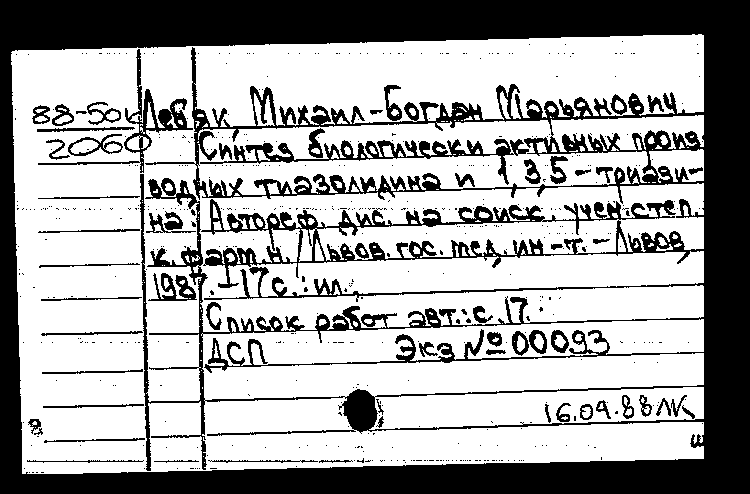 88-50к Левяк, Михаил-Богдан Марьянович.
2060 Синтез биологически активных произ-
водных тиазолидина и 1,3,5-триази-
на: Автореф. дис. на соиск. учен. степ.
к. фарм. н. / Львов. гос. мед. ин-т. - Львов,
1987. - 17 с.: ил.
Список работ авт.: с. 17.
ДСП Экз № 00093
16.09.88 ЛК
8
ш